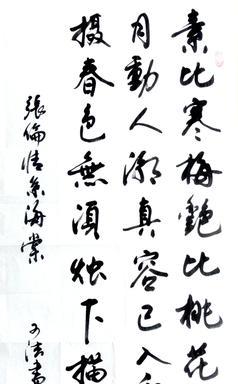 素比寒梅艷比桃花
月動人潮真容已入
摄春色無須燭下描
張倫情系海棠